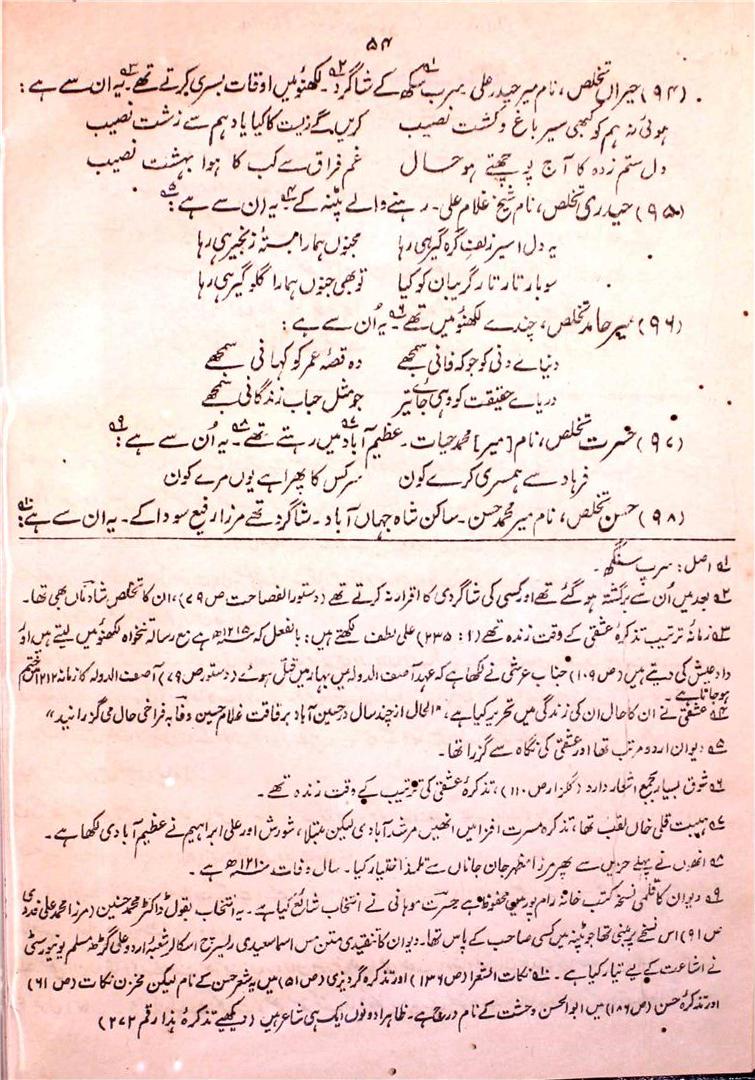 ۵۴
(۹۴) حیراں تخلص، نام میر حیدر علی سرب سکھ۱؎ کے شاگرد۲؎۔ لکھنؤ میں اوقات بسری کرتے تھے۳؎۔ یہ ان سے ہے:
ہوئی نہ ہم کو کبھی سیر باغ و کشت نصیب کریں گے زیست کا کیا یاد ہم سے زشت نصیب
دل ستم زدہ کا آج پوچھتے ہو حال غم فراق سے کب کا ہوا بہشت نصیب
(۹۵) حیدری تخلص، نام شیخ غلام علی۔ رہنے والے پٹنہ کے۴؎۔ یہ ان سے ہے۵؎:
یہ دل اسیر زلف گرہ گیر ہی رہا مجنوں ہمارا بستۂ زنجیر ہی رہا
سو بار تار تار گریبان کو کیا تو بھی جنوں ہمارا گلو گیر ہی رہا
(۹۶) میر حامد تخلص، چندے لکھنؤ میں تھے۶؎۔ یہ اُن سے ہے:
دنیاے دنی کو جو کہ فانی سمجھے وہ قصۂ عمر کو کہانی سمجھے
دریاے حقیقت کو وہی جاے تیر جو مثل حباب زندگانی سمجھے
(۹۷) حسرت تخلص، نام [میر] محمد حیات۔ عظیم آباد۷؎ میں رہتے تھے۸؎۔ یہ اُن سے ہے۹؎:
فرہاد سے ہمسری کرے کون سر کس کا پھرا ہے یوں مرے کون
(۹۸) حسن تخلص، نام میر محمد حسن۔ ساکن شاہ جہاں آباد۔ شاگرد تھے مرزا رفیع سودا کے۔ یہ ان سے ہے۱۰؎:
۱؎ اصل: سرپ سنگھ۔
۲؎ بعد میں اُن سے برگشتہ ہو گئے تھے اور کسی کی شاگردی کا اقرار نہ کرتے تھے (دستور الفصاحت ص ۷۹)، ان کا تخلص شاداں بھی تھا۔
۳؎ زمانۂ ترتیب تذکرۂ عشقی کے وقت زندہ تھے (۱: ۲۳۵) علی لطف لکھتے ہیں: بالفعل کہ ۱۲۱۵ھ ہے مع رسالہ تنخواہ لکھنؤ میں لیتے ہیں اور
داد عیش کی دیتے ہیں (ص ۱۰۹) جناب عرشی نے لکھا ہے کہ عہد آصف الدولہ میں بہار میں قتل ہوئے (دستور ص ۷۹) آصف الدولہ کا زمانہ ۱۲۱۲ھ ختم
ہو جاتا ہے۔
۴؎ عشقی نے ان کا حال ان کی زندگی میں تحریر کیا ہے، "الحال از چند سال در حسین آباد بر رفاقت غلام حسین وفا بہ فراخی حال می گزرانید"
۵؎ دیوان اردو مرتب تھا اور عشقی کی نگاہ سے گزرا تھا۔
۶؎ شوق بسیار بجمع اشعار دارد (گلزار ص ۱۱۰)، تذکرۂ عشقی کی ترتیب کے وقت زندہ تھے۔
۷؎ ہیبت قلی خاں لقب تھا، تذکرہ مسرت افزا میں انھیں مرشد آبادی لیکن مبتلا، شورش اور علی ابراہیم نے عظیم آبادی لکھا ہے۔
۸؎ انھوں نے پہلے حزیں سے پھر مرزا مظہر جان جاناں سے تلمذ اختیار کیا۔ سال وفات ۱۲۱۰ھ ہے۔
۹؎ دیوان کا قلمی نسخہ کتب خانہ رام پور میں محفوظ ہے حسرت موہانی نے انتخاب شائع کیا ہے۔ یہ انتخاب بقول ڈاکٹر محمد حسنین (مرزا محمد علی فدوی
ص ۹۱) اس نسخے پر مبنی تھا جو پٹنہ میں کسی صاحب کے پاس تھا۔ دیوان کا تنقیدی متن مس اسما سعیدی ریسرچ اسکالر شعبۂ اردو علی گڑھ مسلم یونیورسٹی
نے اشاعت کے لیے تیار کیا ہے۔ ۱۰؎ نکات الشعرا (ص ۱۳۶) اور تذکرہ گردیزی (ص ۵۱) میں یہ شعر حسن کے نام لیکن مخزن نکات (ص ۶۱)
اور تذکرۂ حسن (ص ۱۸۶) میں ابو الحسن وحشت کے نام درج ہے۔ ظاہرا دونوں ایک ہی شاعر ہیں (دیکھیے تذکرۂ ہذا رقم ۲۷۲)